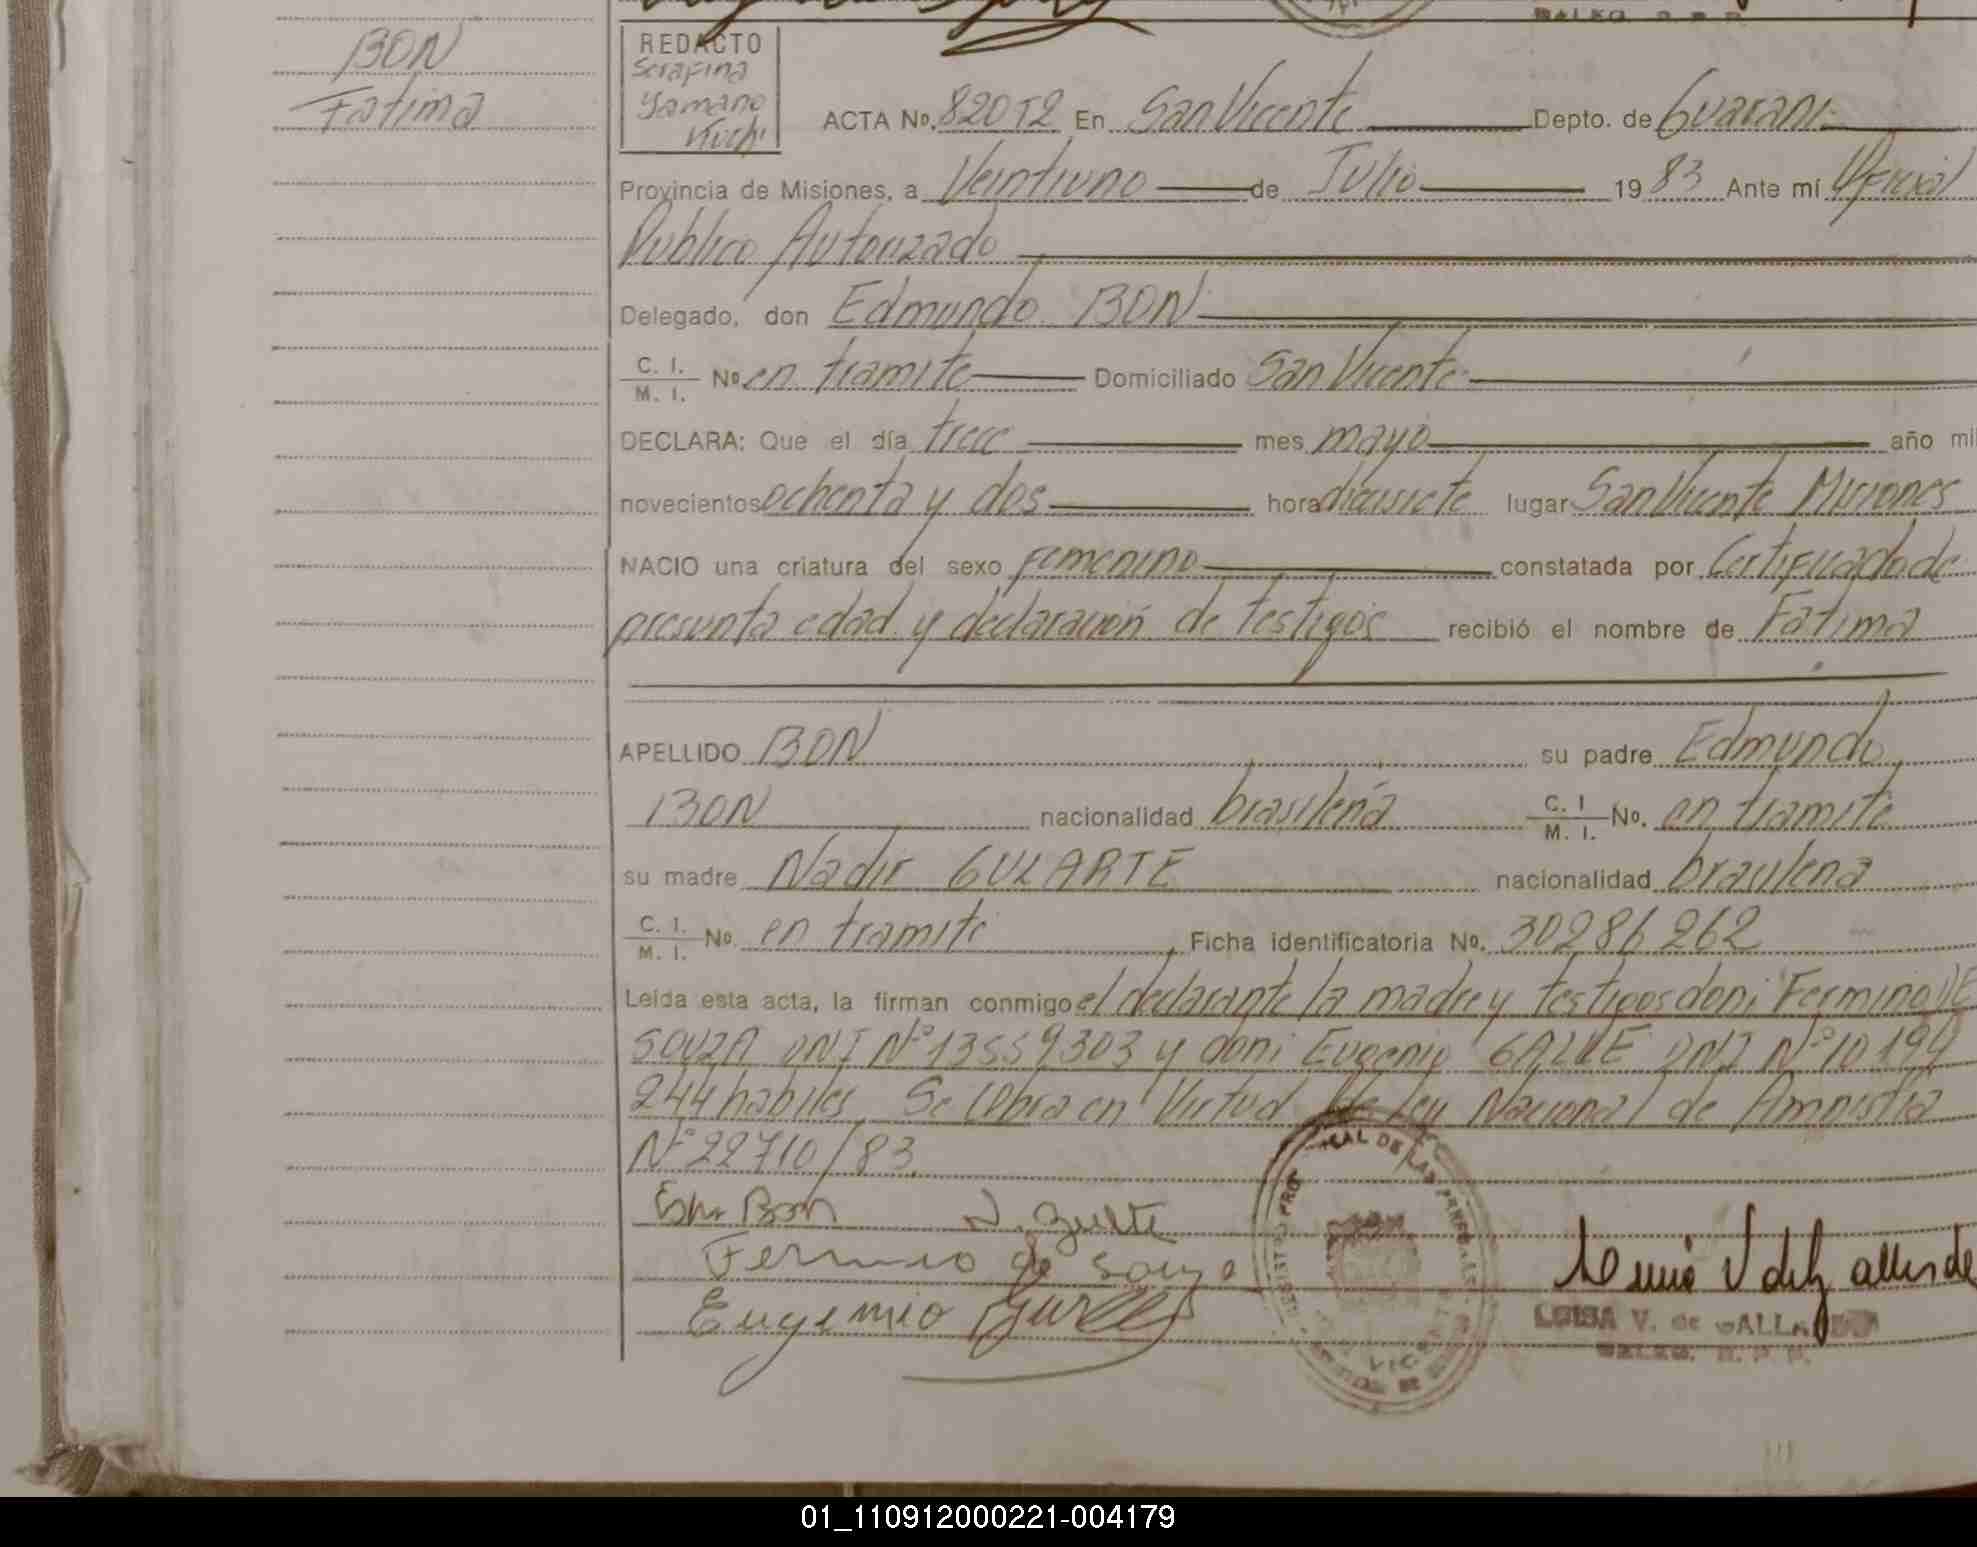 BON
Fatima
REDACTO
Serafina
Yamano
ACTA No. 82052 En San Vicente Depto. de Guarani
Provincia de Misiones, a Veintiuno de Julio 1983 Ante mí Oficial
Publico Autorizado
Delegado, don Edmundo BON
C. I. / M. I. No. en tramite Domiciliado San Vicente
DECLARA: Que el día trece mes mayo año mil
novecientos ochenta y dos hora diecisiete lugar San Vicente Misiones
NACIO una criatura del sexo femenino constatada por Certificado de
presunta edad y declaración de testigos recibió el nombre de Fatima
APELLIDO BON su padre Edmundo
BON nacionalidad brasileña C. I / M. I. No. en tramite
su madre Nadir GULARTE nacionalidad brasilena
C. I. / M. I. No. en tramite Ficha identificatoria No. 30286262
Leída esta acta, la firman conmigo el declarante la madre y testigos don: Fermino DE
SOUZA DNI Nº 13559303 y don: Eugenio DNI Nº 10194
244 habiles. Se labra en Virtud de ley Nacional de Amnistia
Nº 22710/83.
Bon N. Gularte
Fermino de Souza
Eugenio
LUISA V. de
01_110912000221-004179